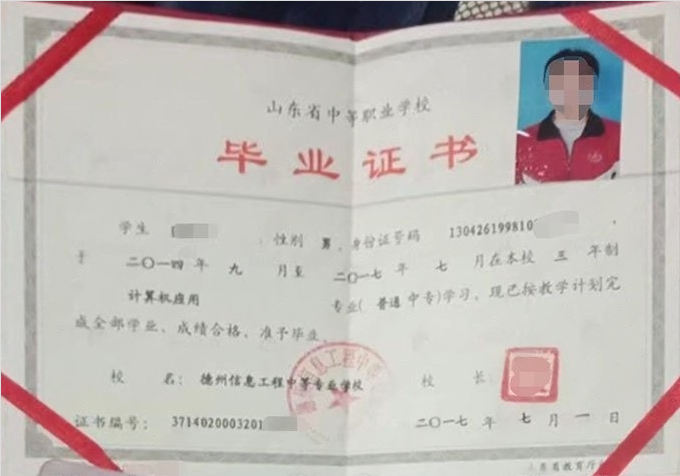 山东省中等职业学校
毕业证书
学生 性别 男 ,身份证号码 130426199810
于 二〇一四 年 九 月至 二〇一七 年 七 月在本校 三 年制
计算机应用 专业( 普通中专)学习,现已按教学计划完
成全部学业、成绩合格,准予毕业。
校 名: 德州信息工程中等专业学校 校 长:
证书编号: 3714020003201 二〇一七 年 七 月 一 日
山东省教育厅